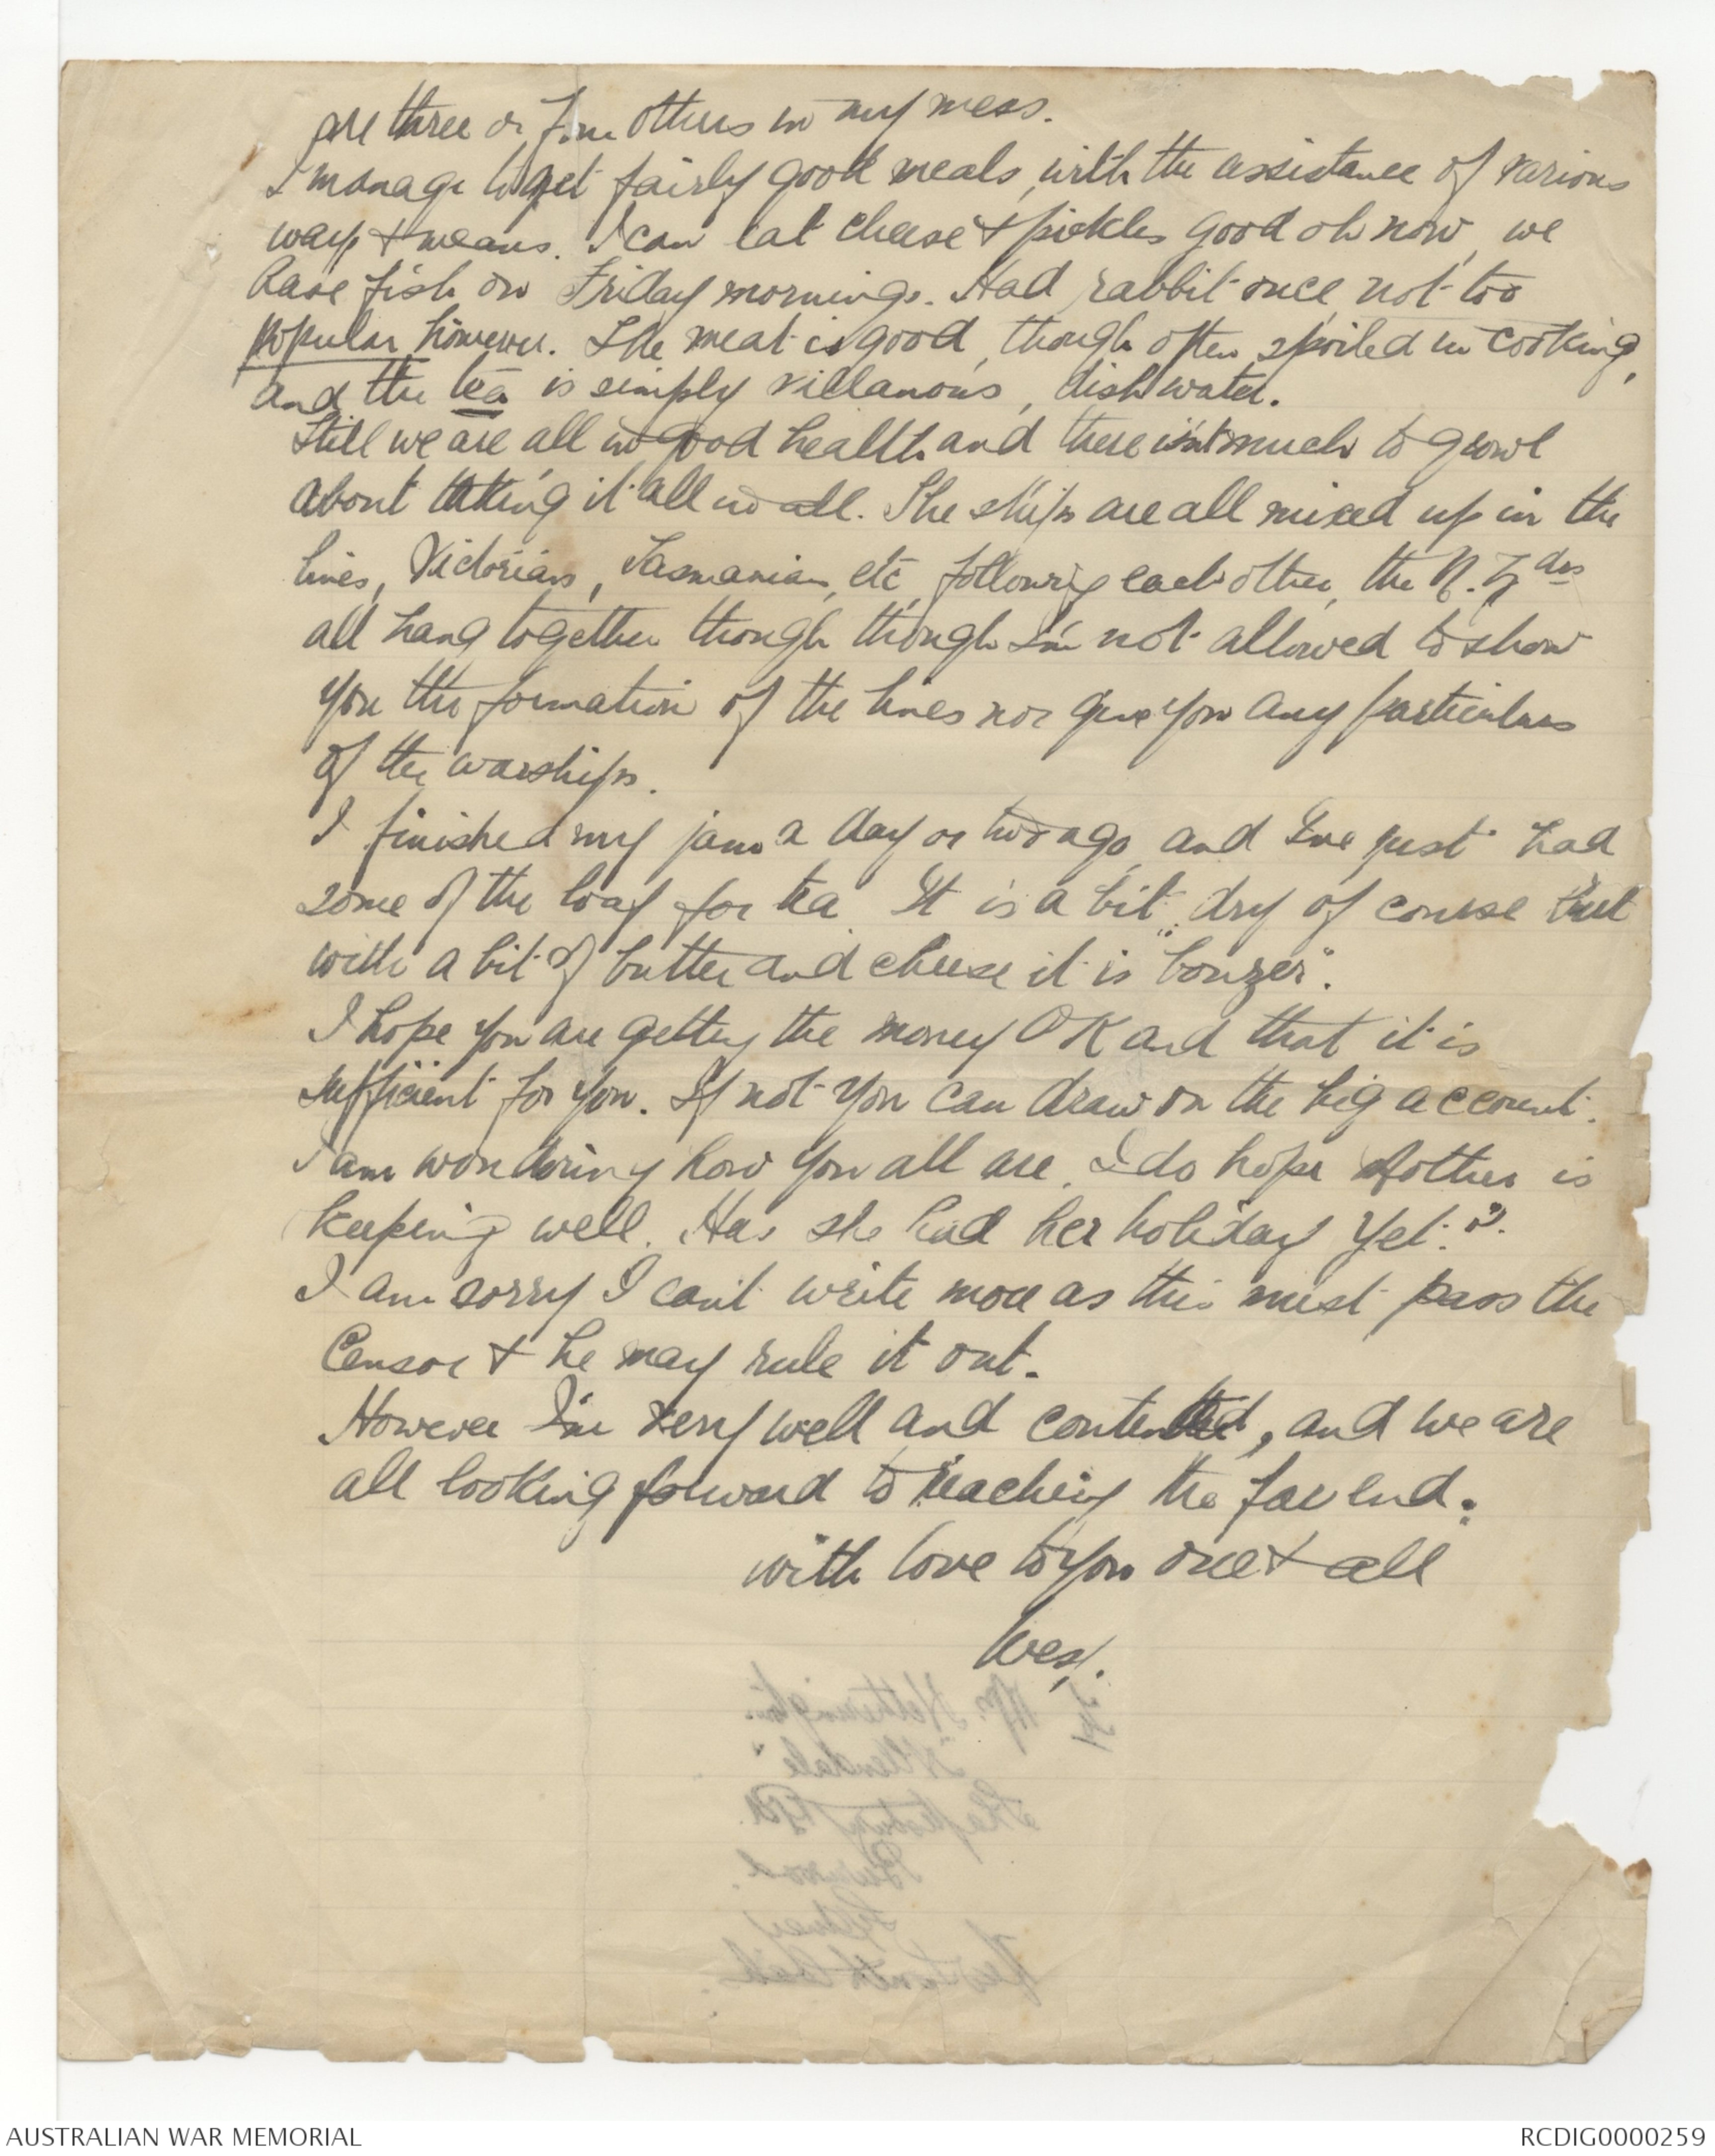 are three or four others in my mess.
I manage to get fairly good meals, with the assistance of various
ways & means. I can eat cheese & pickles good oh now, we
have fish on Friday mornings. Had rabbit once, not too
popular, however. The meat is good, though often spoiled in cooking,
and the tea is simply villanous, dishwater.
Still we are all in good health and there isn't much to growl
about taking it all in all. The ships are all mixed up in the
lines, Victorian, Tasmanian, etc, following each other, the N.Z drs
all hang together though though I'm not allowed to show
you the formation of the lines nor give you any particulars
of the warships.
I finished my jam a day or two ago, and I've just had
some of the loaf for tea. It is a bit dry of course but
with a bit of butter and cheese it is "bonzer".
I hope you are getting the money OK and that it is
sufficient for you. If not you can draw on the big account.
I am wondering how you all are. I do hope Mother is
keeping well. Has she had her holiday yet?
I am sorry I can't write more as this must pass the
Censor & he may rule it out.
However I'm very well and contented, and we are
all looking forward to reaching the far end.
with love to you one & all
Wes.
To Mr. Hetherington.
"Allendale"
Shaftesbury Rd.
Burwood.
Sydney
New South Wales.
AUSTRALIAN WAR MEMORIAL
RCDIG0000259